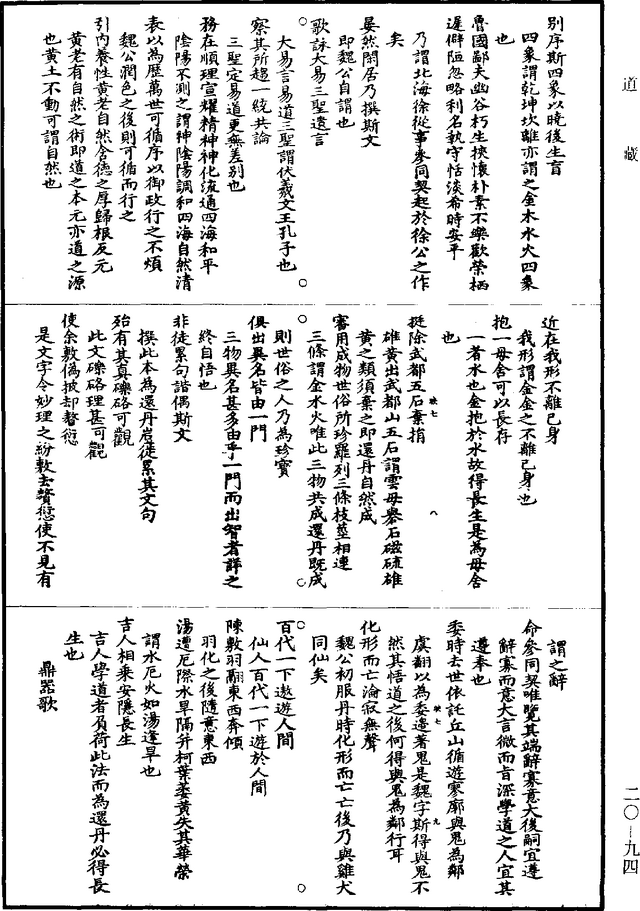 道藏
別序斯四象以曉後生盲
四象謂乾坤坎離亦謂之金木水火四象
也
魯國鄙夫幽谷朽生挾懷朴素不樂歡榮栖
遲僻陋忽略利名執守恬淡希時安平
乃謂北海徐從事參同契起於徐公之作
矣
晏然閑居乃撰斯文
即魏公自謂也
歌詠大易三聖遺言
大易言易道三聖謂伏羲文王孔子也
察其所趨一統共論
三聖定易道更無差別也
務在順理宣耀精神神化流通四海和平
陰陽不測之謂神陰陽調和四海自然清
表以為歷萬世可循序以御政行之不煩
魏公潤色之後則可循而行之
引內養性黃老自然含德之厚歸根反元
黃老有自然之術即道之本元亦道之源
也黃土不動可謂自然也
近在我形不離己身
我形謂金金之不離己身也
抱一毋舍可以長存
一者水也金抱於水故得長生是為毋舍
也
挺除武都五石棄捐
雄黃出武都山五石謂雲母礜石磁硫雄
黃之類須棄之即還丹自然成
審用成物世俗所珍羅列三條枝莖相連
三條謂金水火唯此三物共成還丹既成
則世俗之人乃為珍寶
俱出異名皆由一門
三物異名甚多由乎一門而出智者詳之
終自悟也
非徒累句諧偶斯文
撰此本為還丹豈徒累其文句
殆有其真礫硌可觀
此文礫硌理甚可觀
使余敷偽披却贅愆
是文字令妙理之紛敷去贅愆使不見有
謂之辭
命參同契唯覽其端辭寡意大後嗣宜遵
辭寡而意大言微而旨深學道之人宜其
遵奉也
委時去世依託丘山循遊寥廓與鬼為鄰
虞翻以為委邊著鬼是魏字斯得與鬼不
然其悟道之後何得與鬼為鄰行耳
化形而亡淪寂無聲
魏公初服丹時化形而亡亡後乃與雞犬
同仙矣
百代一下遨遊人間
仙人百代一下遊於人間
陳敷羽翮東西奔傾
羽化之後隨意東西
湯遭厄際水旱隔并柯葉萎黃失其華榮
謂水厄火如湯逢旱也
吉人相乘安隱長生
吉人學道者負荷此法而為還丹必得長
生也
鼎器歌
二〇—九四